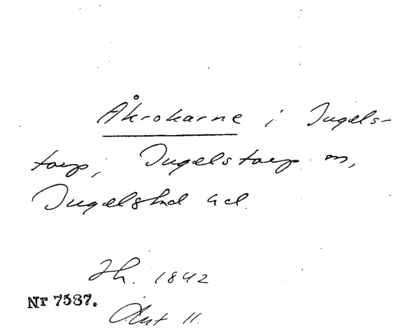 Åkrokarne i Ingels-
torp, Ingelstorp sn,
Ingelstad hd.
Th. 1842
Nr 7587.
Akt 11.